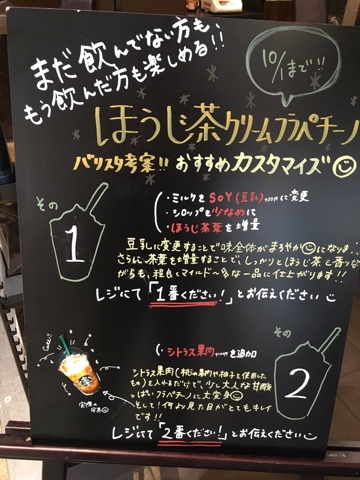 まだ飲んでない方も
もう飲んだ方も楽しめる!!
10/1まで!!
ほうじ茶クリームフラペチーノ
バリスタ考案!! おすすめカスタマイズ
その
1
・ミルクをSOY(豆乳)に変更
・シロップを少なめに
・ほうじ茶葉を増量
豆乳に変更することで味全体がまろやかになります
さらに、茶葉を増量することで、しっかりとほうじ茶を香りな
がらも、程良くマイルド〜な一品に仕上がります!!
レジにて「1番ください!」とお伝えください
・シトラス果肉を追加
その
2
シトラス果肉(桃の果肉や柚子を使用した
もの)を入れるだけで、少し大人な甘酸
っぱいフラペチーノに大変身
そして!何より見た目がとてもキレイ
です!!
レジにて「2番ください!」とお伝えください